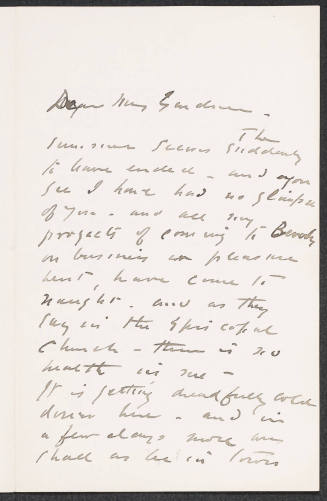 Dear Mrs Gardner -
The
summer seems suddenly
to have ended - and you
see I have had no glimpse
of you - and all my
projects of coming to Beverly
on business or pleasure
bent, have come to
naught - and as they
say in the Episcopal
Church - there is no
health in me -
It is getting dreadfully cold
down here - and in
a few days more we
shall all be in Town